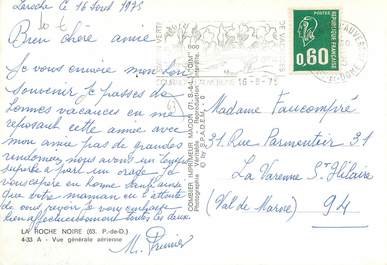 Laroche le 16 Août 1975
Bien chère amie
Je vous envoie mon bon
Souvenir je passe de
bonnes vacances en me
reposant cette année avec
mon amie pas de grandes
randonnées nous avons un temps
superbe à part un orage Je
vous espère en bonne santé ainsi
que votre maman en l'attente
de vous revoir je vous embrasse
bien affectueusement toutes les deux
M. Prunier
LA ROCHE NOIRE (63. P.-de-D.)
4-33 A - Vue générale aérienne
COMBIER IMPRIMEUR MACON (71. S.-&-L.) "CIM"
Photographie Véritable - Reproduction Interdite
© by S.P.A.D.E.M.
16-8-75
POSTES
FRANCE
0,60
Madame Faucompré
31 Rue Parmentier 31
La Varenne St Hilaire
(Val de Marne) 94